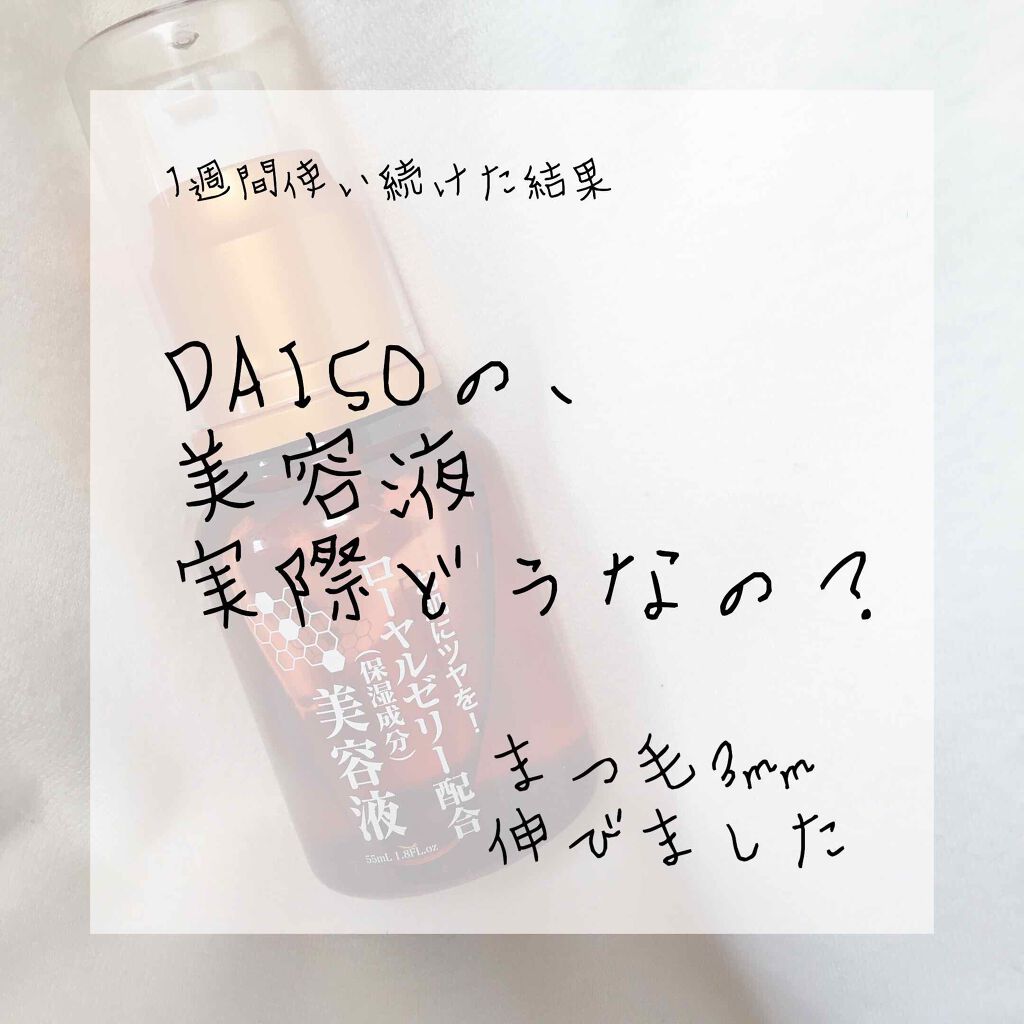 1週間使い続けた結果
DAISOの、
美容液
実際どうなの?
まつ毛3mm
伸びました
お肌にツヤを!
ローヤルゼリー配合
(保湿成分)
美容液
55mL 1.8FL.oz